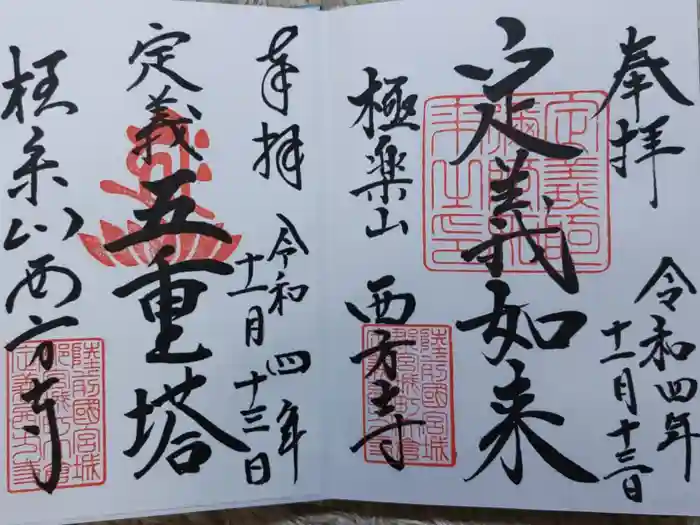 奉拝
令和四年
十一月十三日
定義如来
極楽山
西方寺
奉拝
令和四年
十一月
十三日
定義五重塔
極楽山西方寺